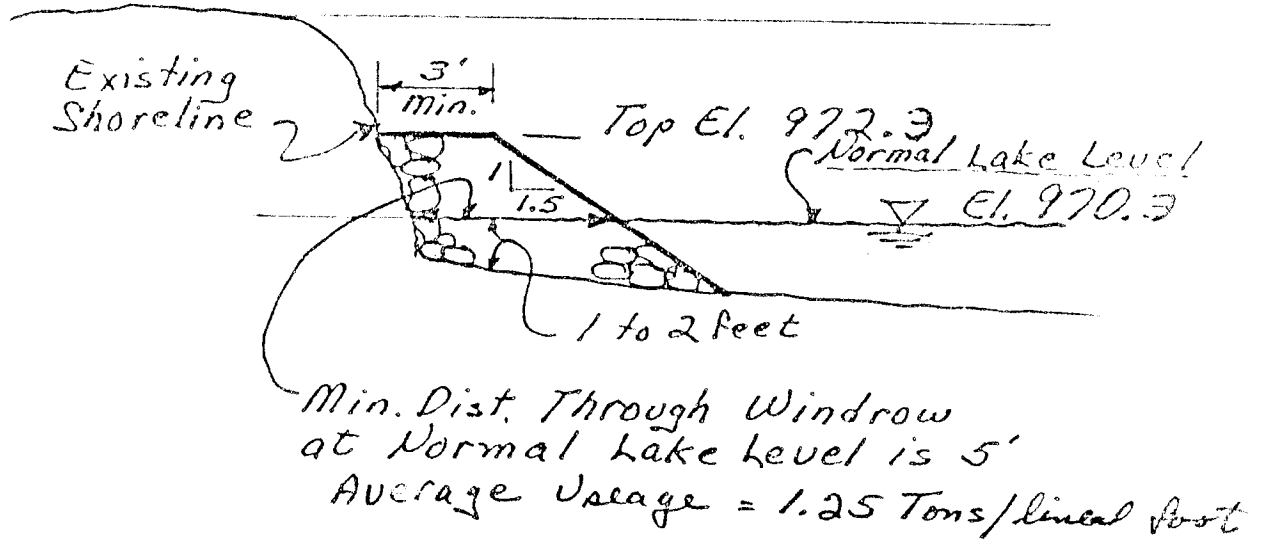 Existing
Shoreline
3'
min.
Top El. 972.3
Normal Lake Level
El. 970.3
1
1.5
1 to 2 feet
Min. Dist. Through Windrow
at Normal Lake Level is 5'
Average Useage = 1.25 Tons/lineal foot